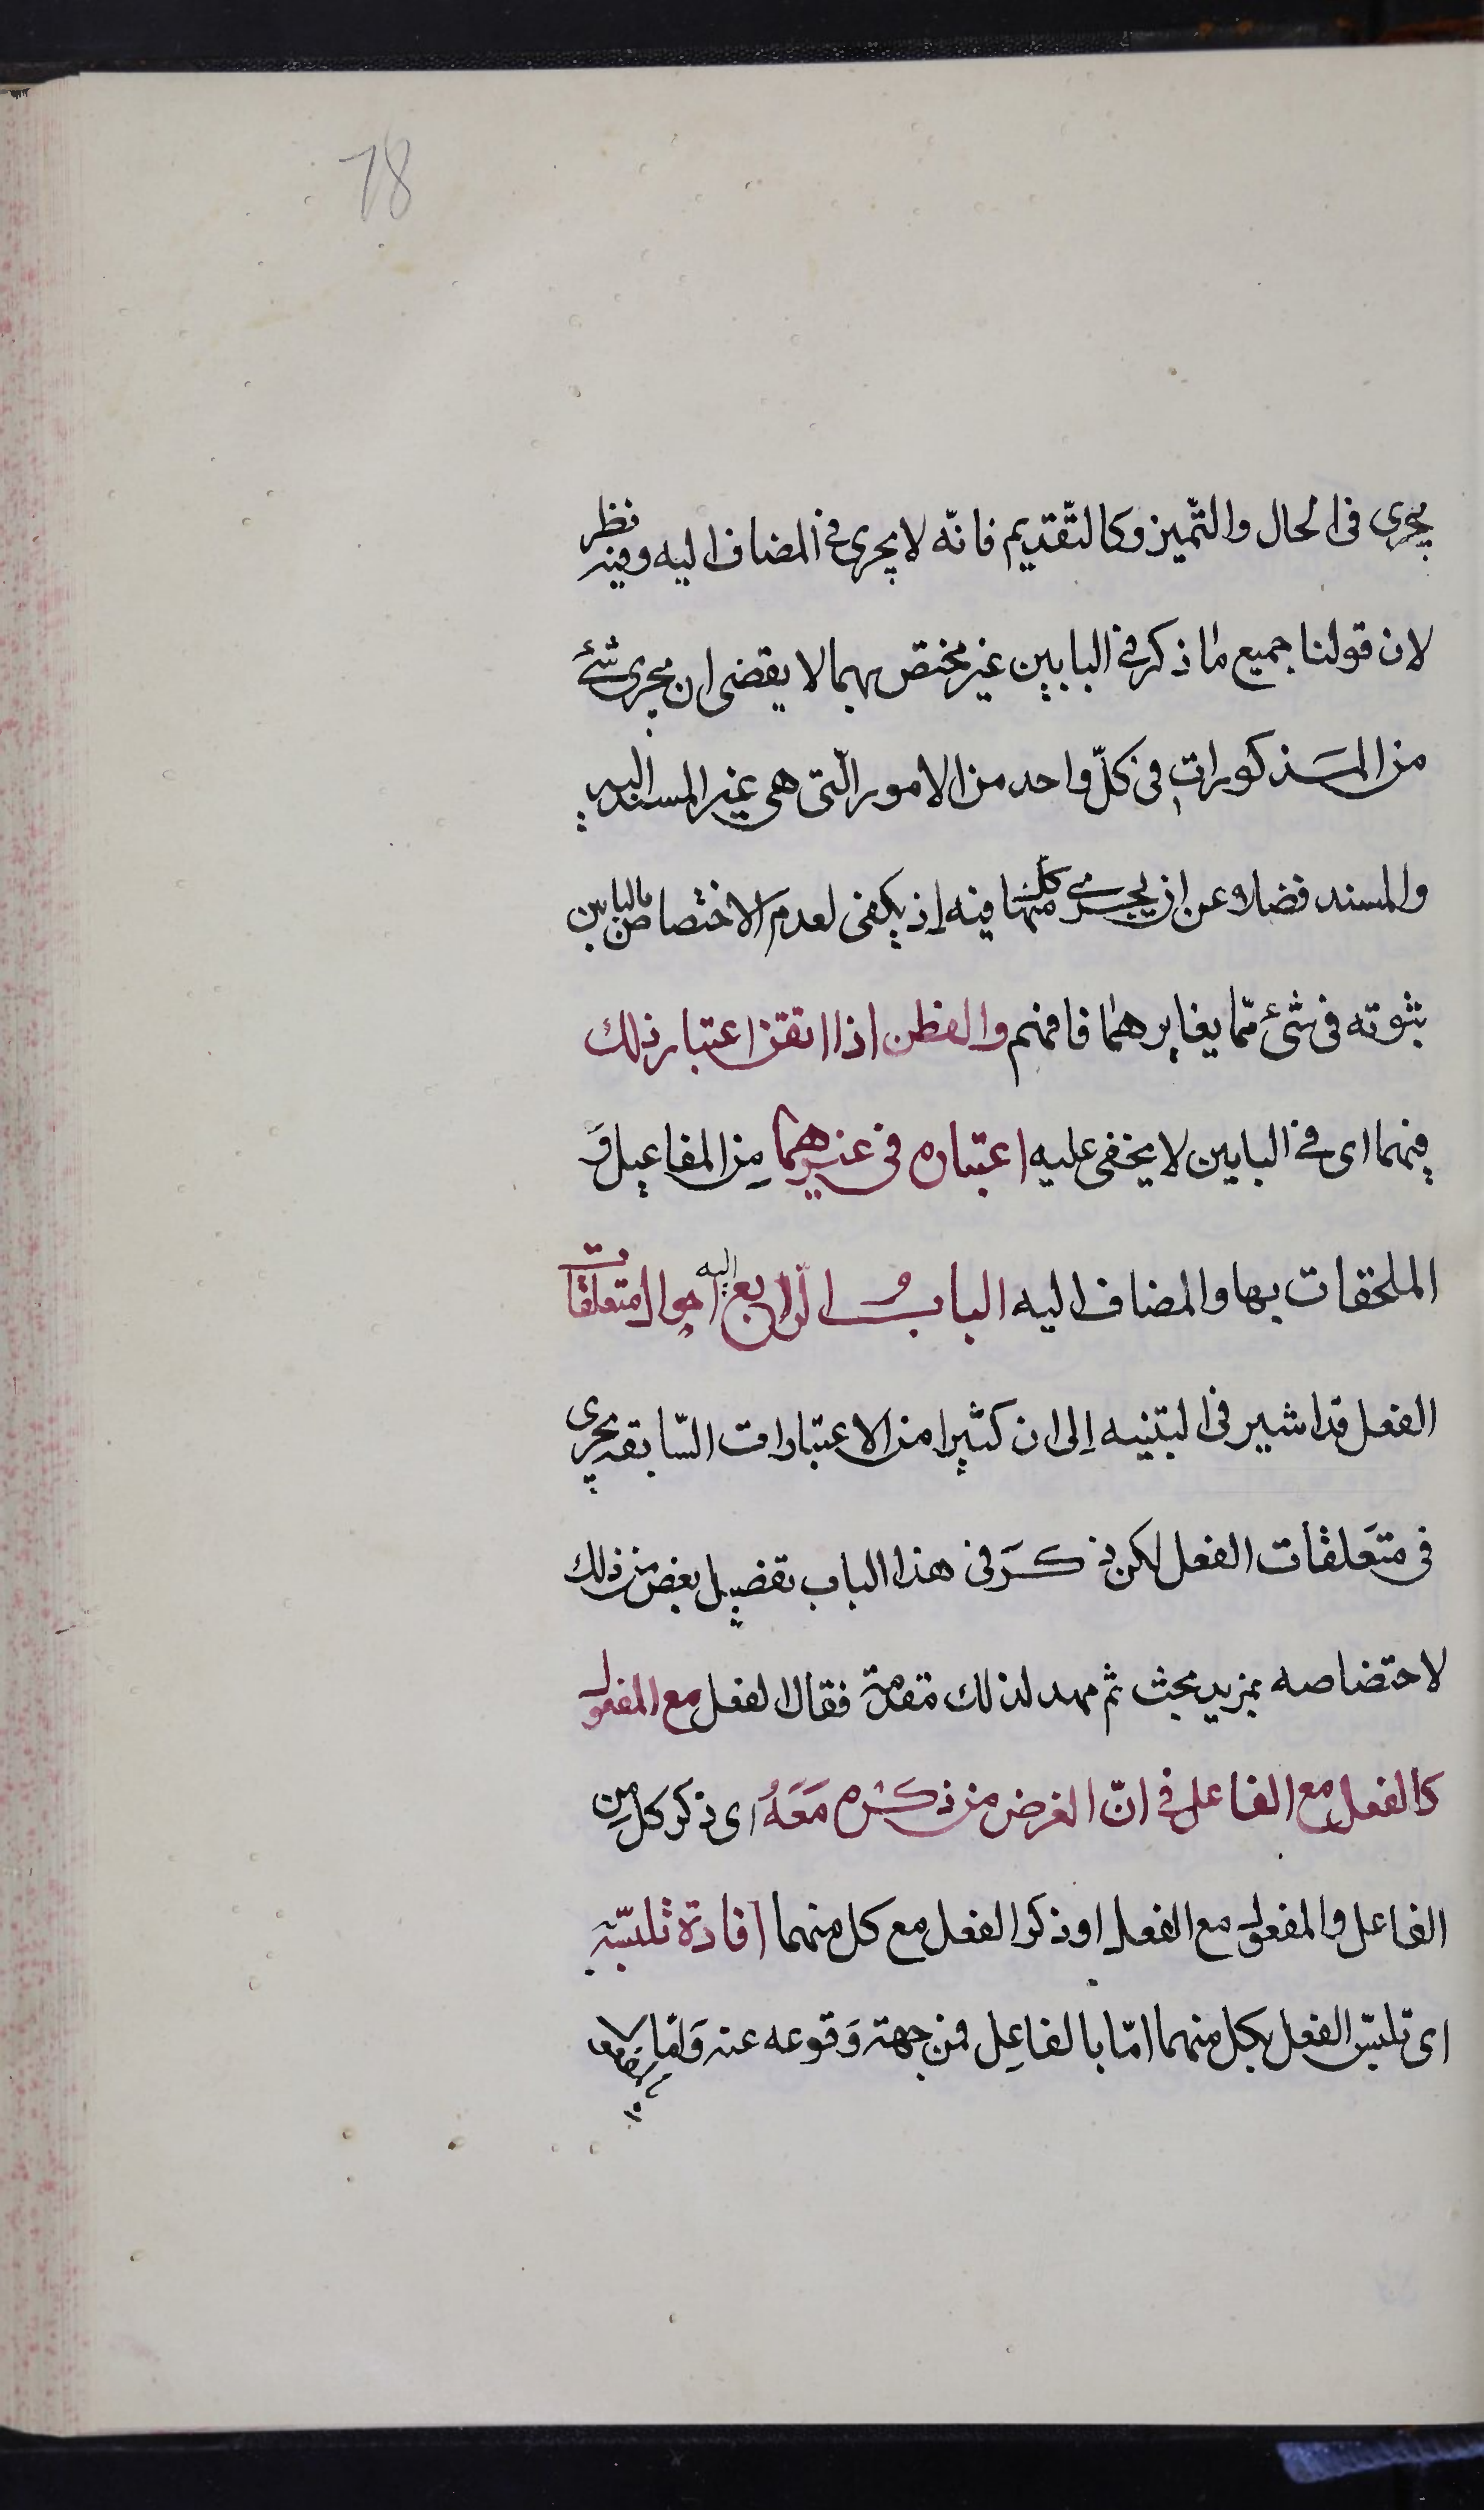 78
يجرى فى الحال والتّميز وكالتّقديم فانّه لا يجرى فى المضاف اليه وفيه نظر
لان قولنا جميع ما ذكر فى البابين غير مختص بهما لا يقضى ان يجرى شئ
من المذكورات فى كلّ واحد من الامور الّتى هى غير المسند اليه
والمسند فضلا عن ان يجرى كلّ منها فيه إذ يكفى لعدم الاختصاص بالبابين
ثبوته فى شئ ممّا يغايرهما فافهم والفطن اذا اتقن اعتبار ذلك
فيهما اى فى البابين لا يخفى عليه اعتباره فى غيرهما مِن المفاعيل وَ
الملحقات بها والمضاف اليه الباب الرّابع احوال متعلقات
الفعل قد اشير فى التنبيه إلى ان كثيرا من الاعتبارات السّابقه يجرى
فى متعَلقات الفعل لكن ذكَر فى هذا الباب تفضيل بعض من ذلك
لاختصاصه بمزيد بحث ثم مهد لذلك مقدمة فقال الفعل مع المفعول
كالفعل مع الفاعل فى انّ الغرض من ذكره مَعَهُ اى ذكر كل مِن
الفاعل والمفعول مع الفعل او ذكر الفعل مع كل منهما افادة تلبّسه
اى تلبّس الفعل بكل منهما امّا بالفاعِل فمن جهة وَقوعه عنه وَامّا